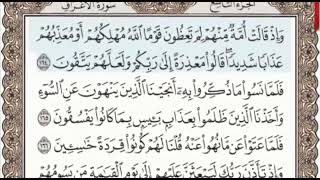 الجزء التاسع سورة الأعراف
وَإِذْ قَالَتْ أُمَّةٌ مِّنْهُمْ لِمَ تَعِظُونَ قَوْمًا ٱللَّهُ مُهْلِكُهُمْ أَوْ مُعَذِّبُهُمْ
عَذَابًا شَدِيدًا ۖ قَالُوا۟ مَعْذِرَةً إِلَىٰ رَبِّكُمْ وَلَعَلَّهُمْ يَتَّقُونَ ١٦٤
فَلَمَّا نَسُوا۟ مَا ذُكِّرُوا۟ بِهِۦٓ أَنجَيْنَا ٱلَّذِينَ يَنْهَوْنَ عَنِ ٱلسُّوٓءِ
وَأَخَذْنَا ٱلَّذِينَ ظَلَمُوا۟ بِعَذَابٍۭ بَـِٔيسٍۭ بِمَا كَانُوا۟ يَفْسُقُونَ ١٦٥
فَلَمَّا عَتَوْا۟ عَن مَّا نُهُوا۟ عَنْهُ قُلْنَا لَهُمْ كُونُوا۟ قِرَدَةً خَٰسِـِٔينَ ١٦٦
وَإِذْ تَأَذَّنَ رَبُّكَ لَيَبْعَثَنَّ عَلَيْهِمْ إِلَىٰ يَوْمِ ٱلْقِيَٰمَةِ مَن يَسُومُهُمْ